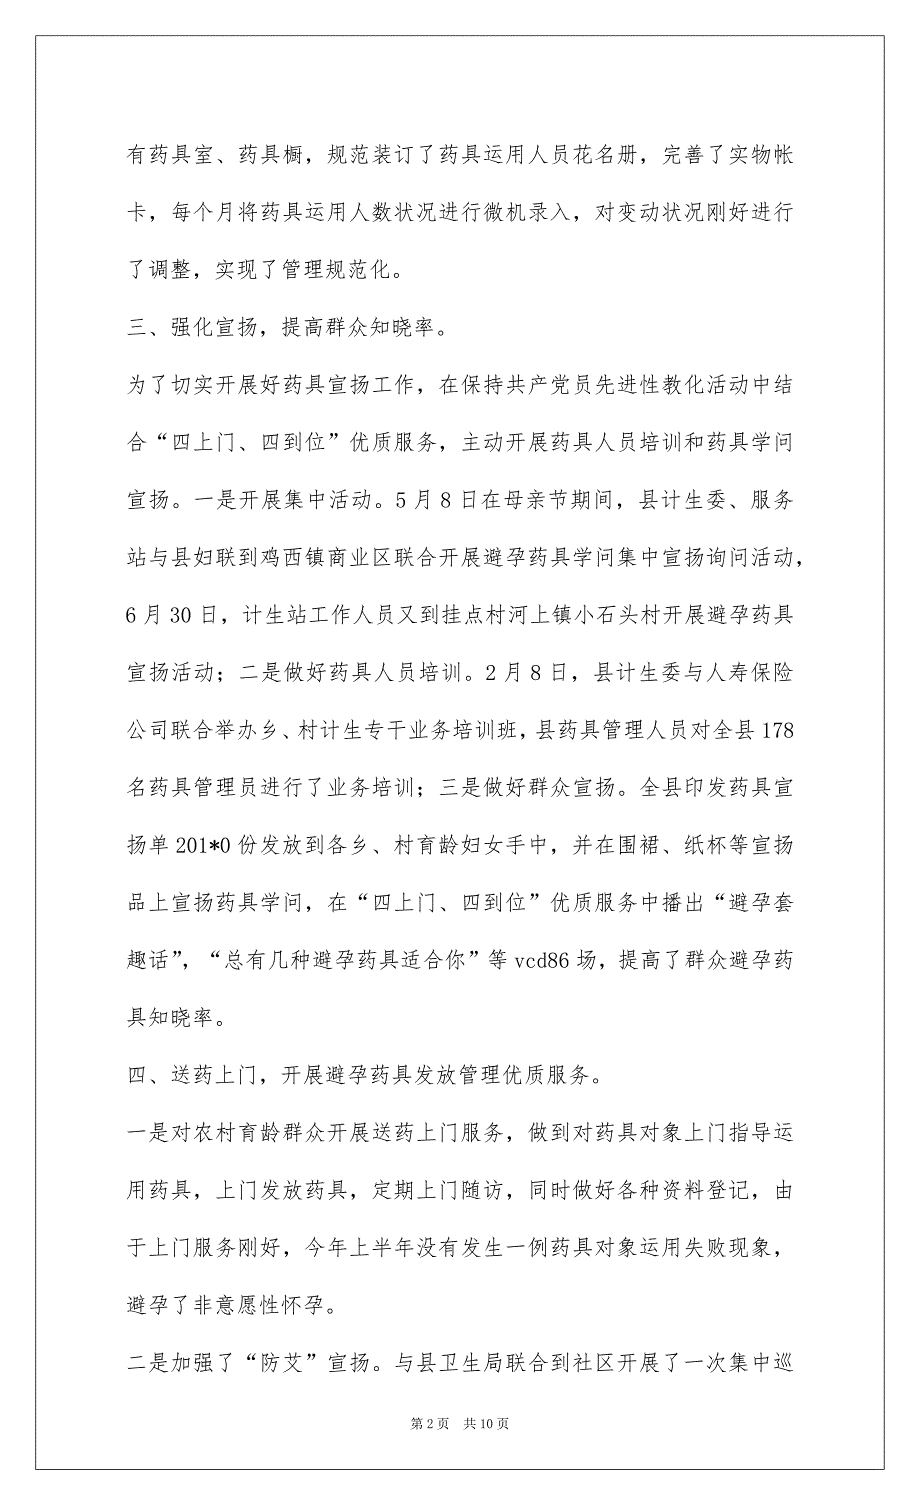 有药具室、药具橱，规范装订了药具运用人员花名册，完善了实物帐
卡，每个月将药具运用人数状况进行微机录入，对变动状况刚好进行
了调整，实现了管理规范化。
三、强化宣扬，提高群众知晓率。
为了切实开展好药具宣扬工作，在保持共产党员先进性教化活动中结
合“四上门、四到位”优质服务，主动开展药具人员培训和药具学问
宣扬。一是开展集中活动。5 月 8 日在母亲节期间，县计生委、服务
站与县妇联到鸡西镇商业区联合开展避孕药具学问集中宣扬询问活动，
6 月 30 日，计生站工作人员又到挂点村河上镇小石头村开展避孕药具
宣扬活动；二是做好药具人员培训。2 月 8 日，县计生委与人寿保险
公司联合举办乡、村计生专干业务培训班，县药具管理人员对全县 178
名药具管理员进行了业务培训；三是做好群众宣扬。全县印发药具宣
扬单 201*0 份发放到各乡、村育龄妇女手中，并在围裙、纸杯等宣扬
品上宣扬药具学问，在“四上门、四到位”优质服务中播出“避孕套
趣话”，“总有几种避孕药具适合你”等 vcd86 场，提高了群众避孕药
具知晓率。
四、送药上门，开展避孕药具发放管理优质服务。
一是对农村育龄群众开展送药上门服务，做到对药具对象上门指导运
用药具，上门发放药具，定期上门随访，同时做好各种资料登记，由
于上门服务刚好，今年上半年没有发生一例药具对象运用失败现象，
避孕了非意愿性怀孕。
二是加强了“防艾”宣扬。与县卫生局联合到社区开展了一次集中巡
第 2 页 共 10 页